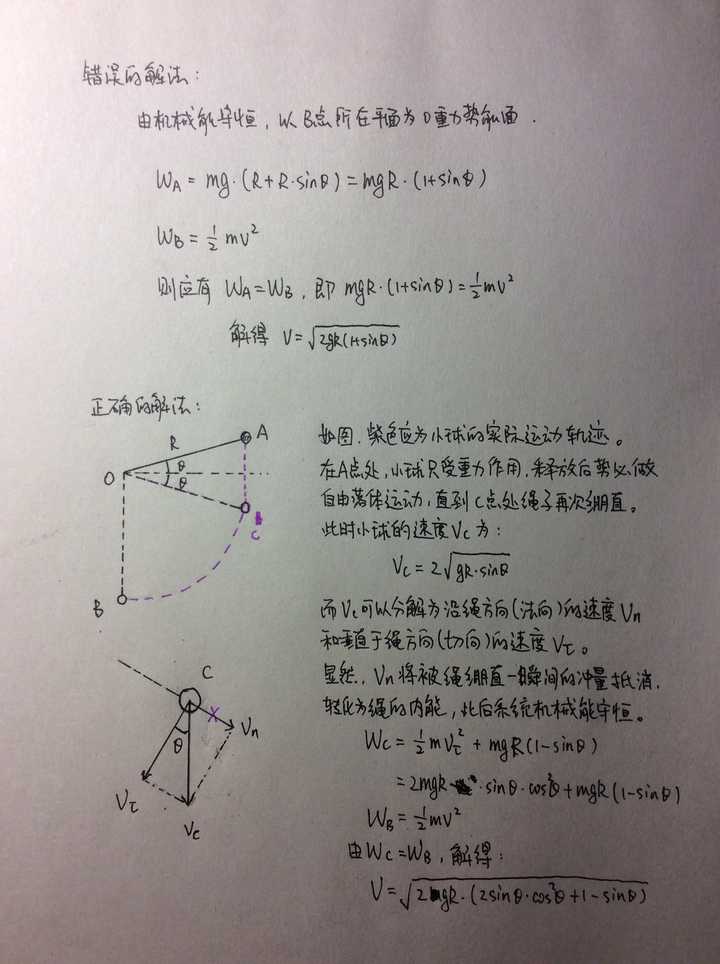 错误的解法：
由机械能守恒，以B点所在平面为0重力势能面．
W_A = mg·(R+R·sinθ) = mgR·(1+sinθ)
W_B = ½mv²
则应有 W_A=W_B，即 mgR·(1+sinθ)=½mv²
解得 V=√2gR(1+sinθ)
正确的解法：
R
A
θ
O
θ
C
B
C
Vn
θ
Vτ
Vc
如图，紫色应为小球的实际运动轨迹。
在A点处，小球只受重力作用，释放后势必做
自由落体运动，直到C点处绳子再次绷直。
此时小球的速度Vc为：
Vc = 2√gR·sinθ
而Vc可以分解为沿绳方向(法向)的速度Vn
和垂直于绳方向(切向)的速度Vτ。
显然，Vn将被绳绷直一瞬间的冲量抵消，
转化为绳的内能，此后系统机械能守恒。
Wc = ½mVτ² + mgR(1-sinθ)
= 2mgR·sinθ·cos²θ+mgR(1-sinθ)
W_B = ½mv²
由Wc=W_B，解得：
V=√2gR·(2sinθ·cos²θ+1-sinθ)